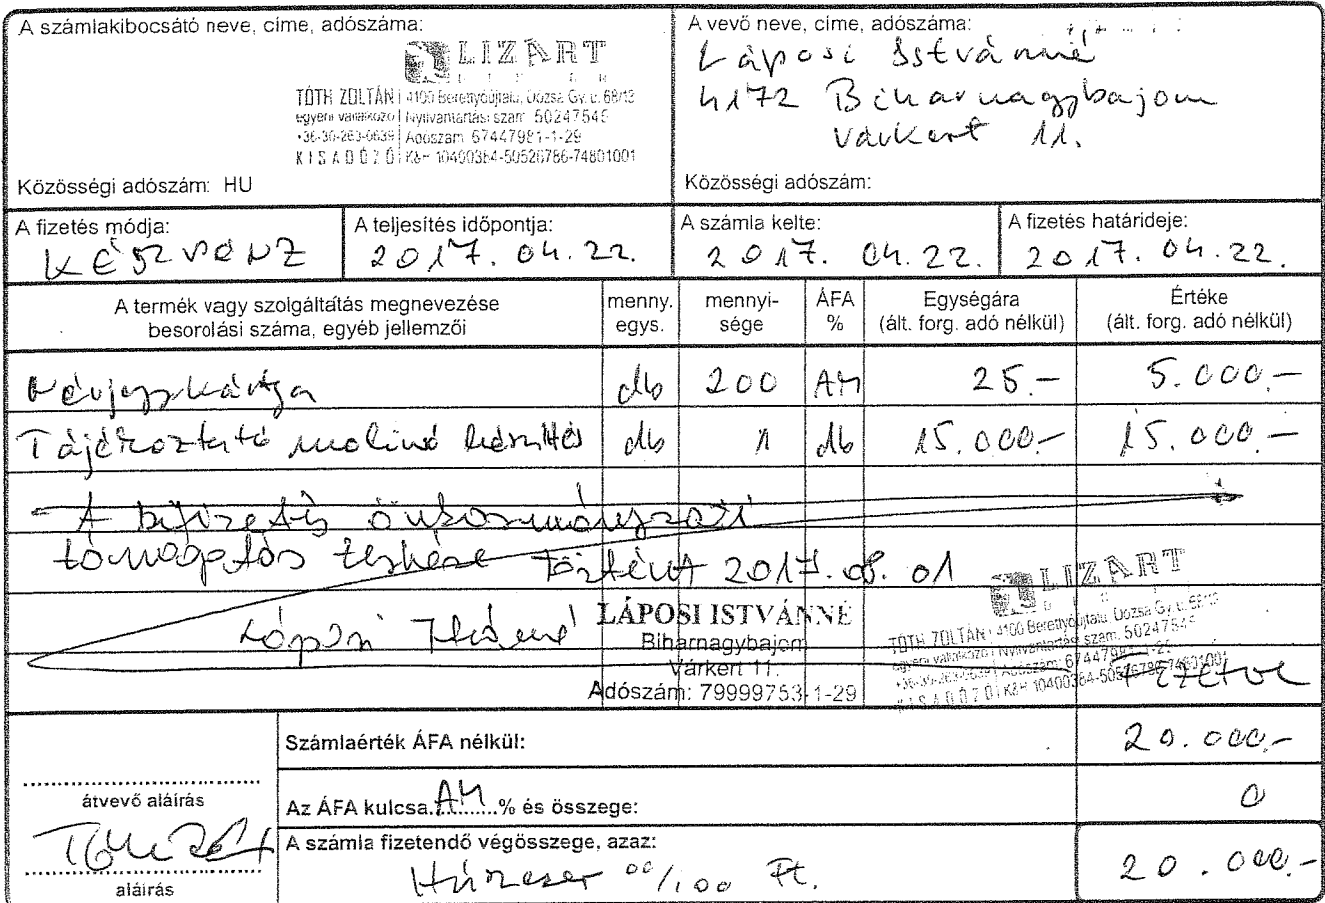 A számlakibocsátó neve, címe, adószáma:
LIZART
TÓTH ZOLTÁN 4100 Berettyóújfalu, Dózsa Gy. u. 68/13
egyéni vállalkozó Nyilvántartási szám: 50247545
+36-30-263-0639 Adószám: 67447981-1-29
KISADÓZÓ K&H 10400364-50526786-74801001
Közösségi adószám: HU
A vevő neve, címe, adószáma:
Láposi Istvánné
4172 Biharnagybajom
Várkert 11.
Közösségi adószám:
A fizetés módja:
KÉSZPÉNZ
A teljesítés időpontja:
2017. 04. 22.
A számla kelte:
2017. 04. 22.
A fizetés határideje:
2017. 04. 22.
A termék vagy szolgáltatás megnevezése besorolási száma, egyéb jellemzői
menny. egys.
mennyi-sége
ÁFA %
Egységára (ált. forg. adó nélkül)
Értéke (ált. forg. adó nélkül)
Névjegykártya db 200 AM 25.- 5.000.-
Tájékoztató molinó készítés db 1 db 15.000.- 15.000.-
A kifizetés önkormányzati
támogatás terhére történt 2017. 08. 01
Láposi Istvánné
LÁPOSI ISTVÁNNÉ
Biharnagybajom
Várkert 11.
Adószám: 79999753-1-29
LIZART
TÓTH ZOLTÁN 4100 Berettyóújfalu, Dózsa Gy. u. 68/13
egyéni vállalkozó Nyilvántartási szám: 50247545
+36-30-263-0639 Adószám: 67447981-1-29
KISADÓZÓ K&H 10400364-50526786-74801001
Fizetve
Számlaérték ÁFA nélkül: 20.000.-
Az ÁFA kulcsa AM % és összege: 0
A számla fizetendő végösszege, azaz:
Húszezer 00/100 Ft. 20.000.-
átvevő aláírás
aláírás